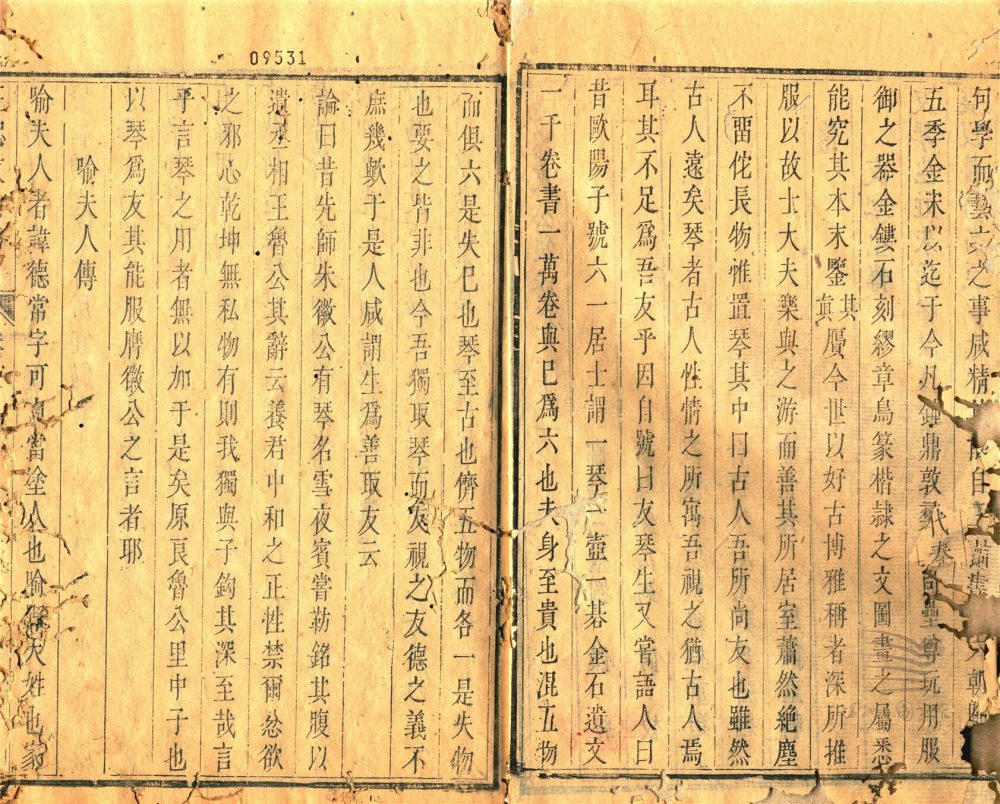 09531
句學而藝文之事咸精
五季金宋以迄于今凡鐘鼎敦
御之器金鏤石刻繆章鳥篆楷隸之文圖畫之屬悉
能究其本末鑒其真贋今世以好古博雅稱者深所推
服以故士大夫樂與之游而善其所居室蕭然絶塵
不畱佗長物惟置琴其中曰古人吾所尚友也雖然
古人遠矣琴者古人性情之所寓吾視之猶古人焉
耳其不足爲吾友乎因自號曰友琴生又嘗語人曰
昔歐陽子號六一居士謂一琴一壺一碁金石遺文
一千卷書一萬卷與已爲六也夫身至貴也混五物
而俱六是失巳也琴至古也儕五物而各一是失物
也要之皆非也今吾獨取琴而友視之友德之義不
庶幾歟于是人咸謂生爲善取友云
論曰昔先師朱徽公有琴名雪夜賓嘗勒銘其腹以
遺丞相王魯公其辭云養君中和之正性禁爾忿欲
之邪心乾坤無私物有則我獨與子鈎其深至哉言
乎言琴之用者無以加于是矣原艮魯公里中子也
以琴爲友其能服膺徽公之言者耶
喻夫人傳
喻夫人者諱德常字可貞當塗人也喻氏大姓也家